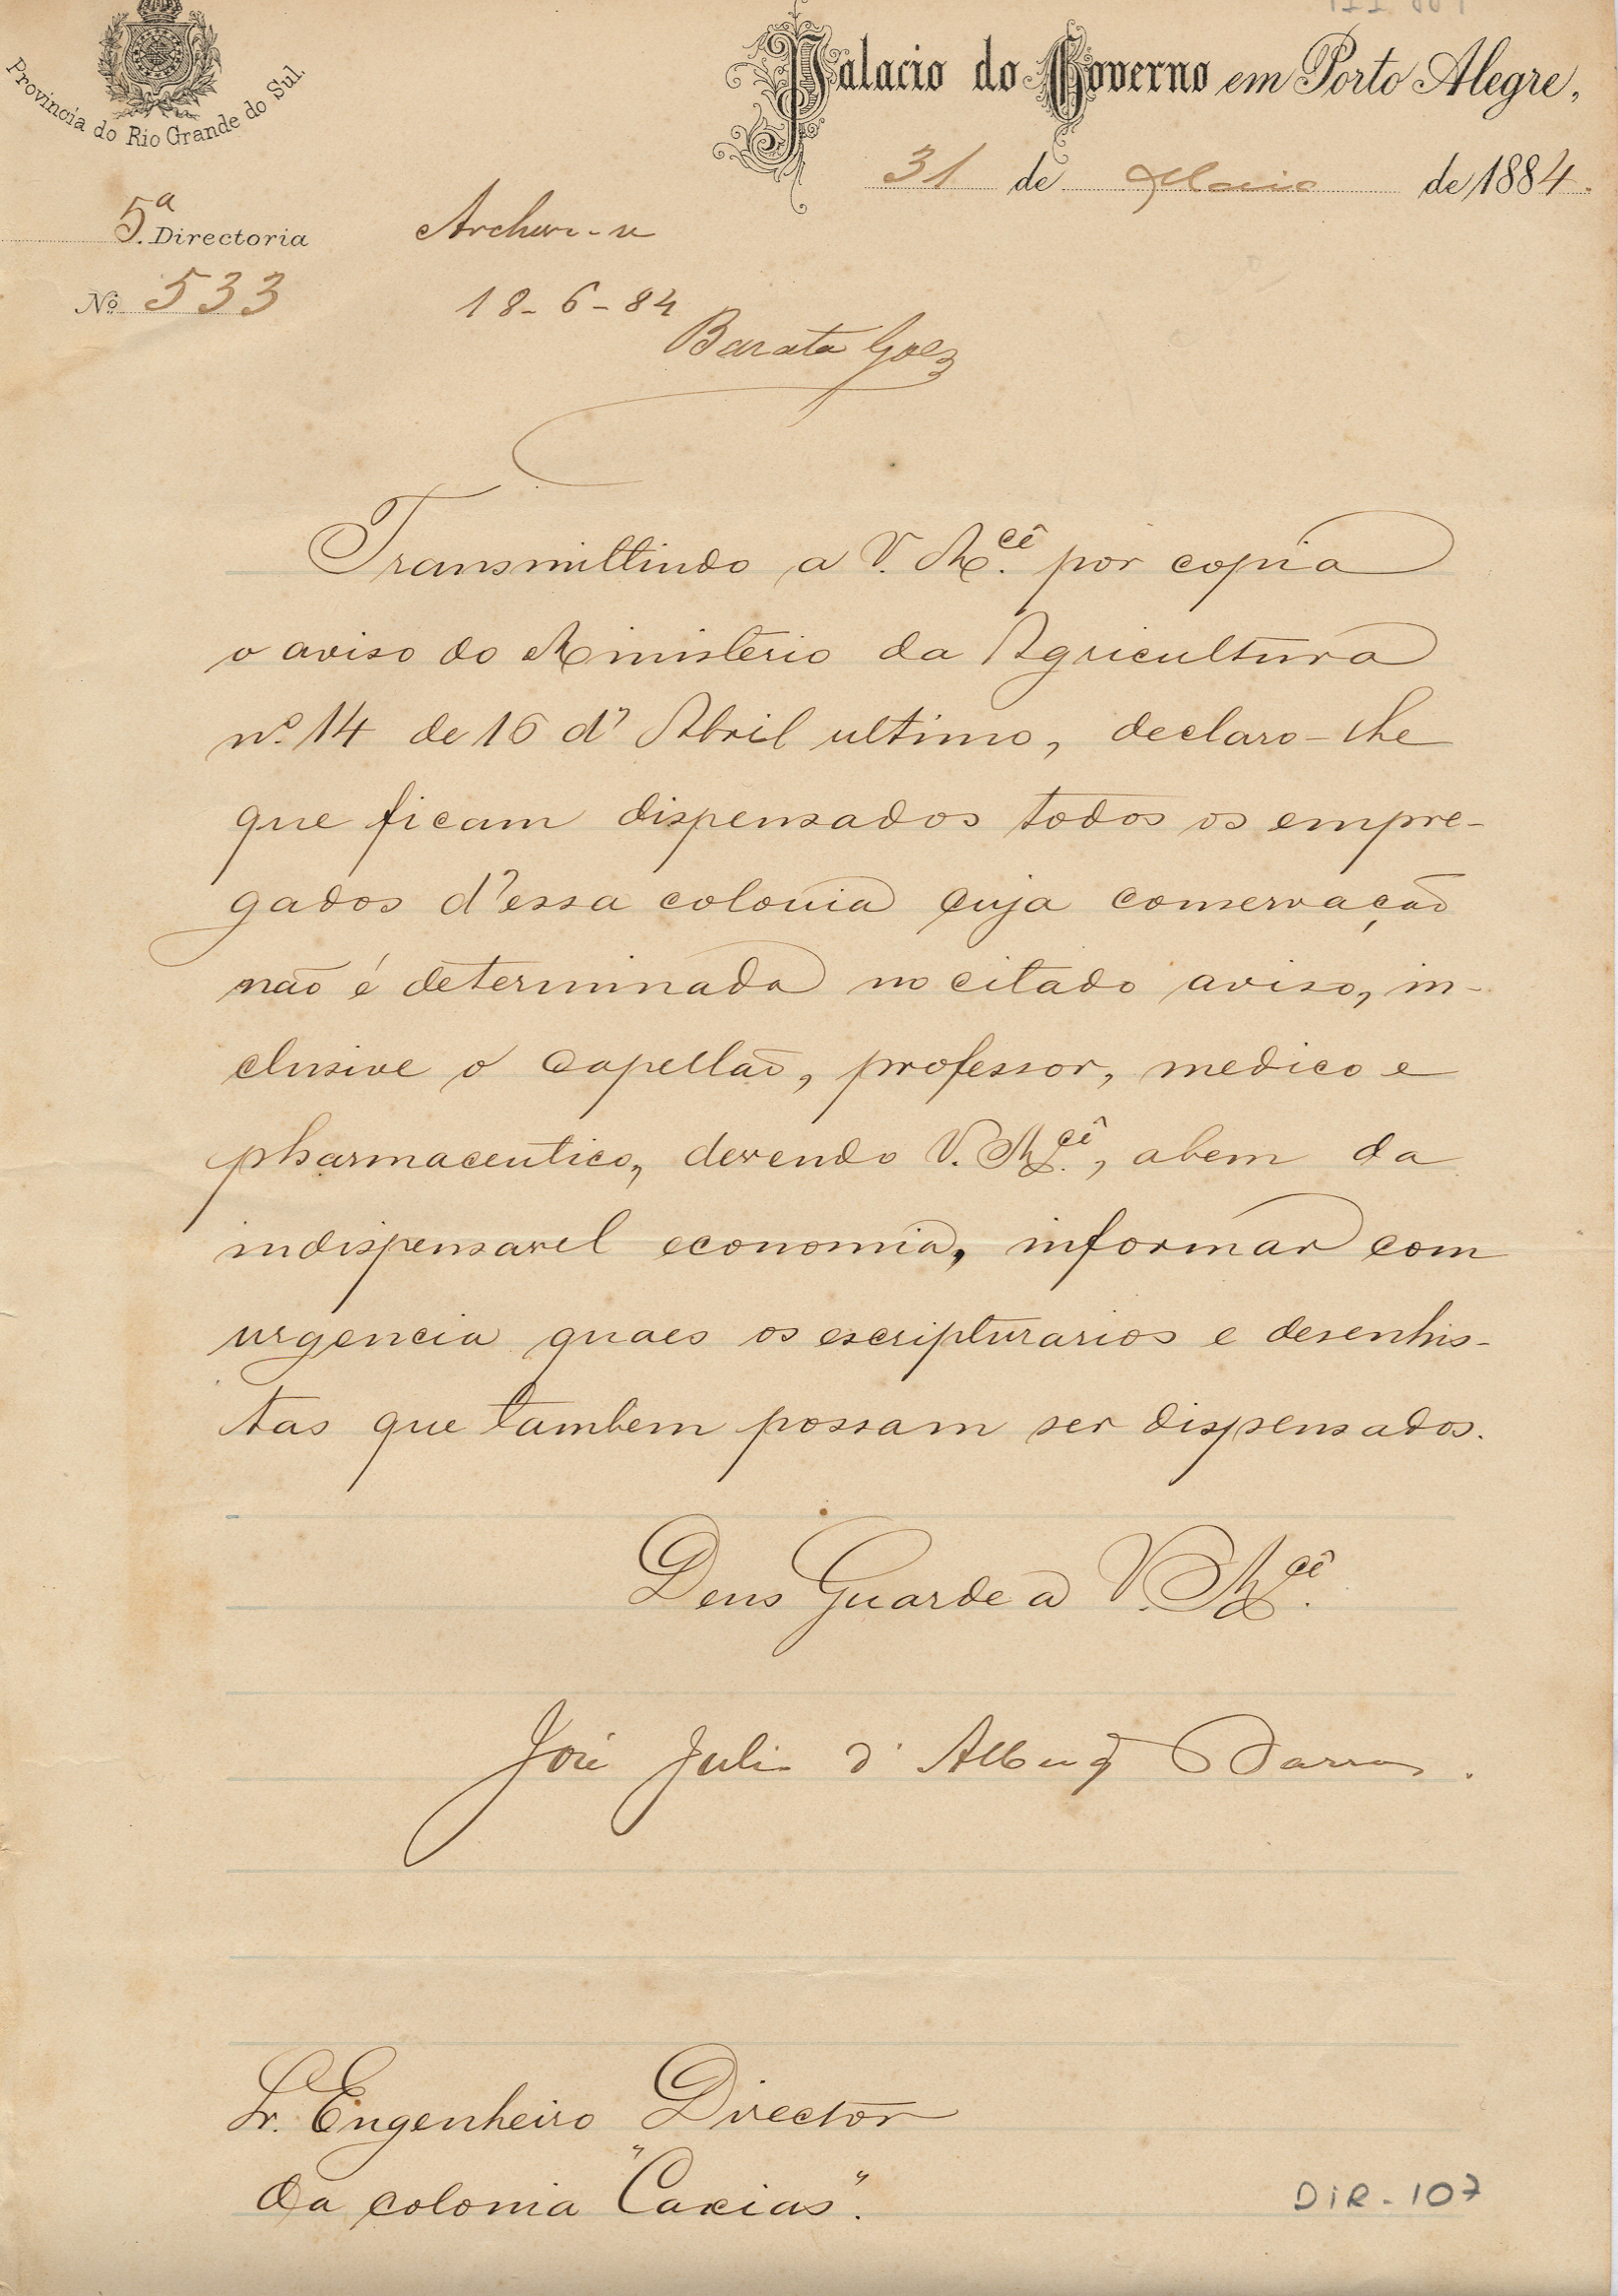 Provincia do Rio Grande do Sul.
Palacio do Governo em Porto Alegre,
31 de Maio de 1884.
5.ª Directoria
Nº 533
Archive-se
18-6-84
Barata Goes
Transmittindo a V. M.cê por copia
o aviso do Ministerio da Agricultura
nº 14 de 16 d'Abril ultimo, declaro-lhe
que ficam dispensados todos os empre-
gados d'essa colonia cuja conservação
não é determinada no citado aviso, in-
clusive o capellão, professor, medico e
pharmaceutico, devendo V. M.cê, abem da
indispensavel economia, informar com
urgencia quaes os escripturarios e desenhis-
tas que tambem possam ser dispensados.
Deus Guarde a V. M.cê.
José Julio d'Albuq Barros.
Sr. Engenheiro Director
da colonia "Caxias".
DIR-107